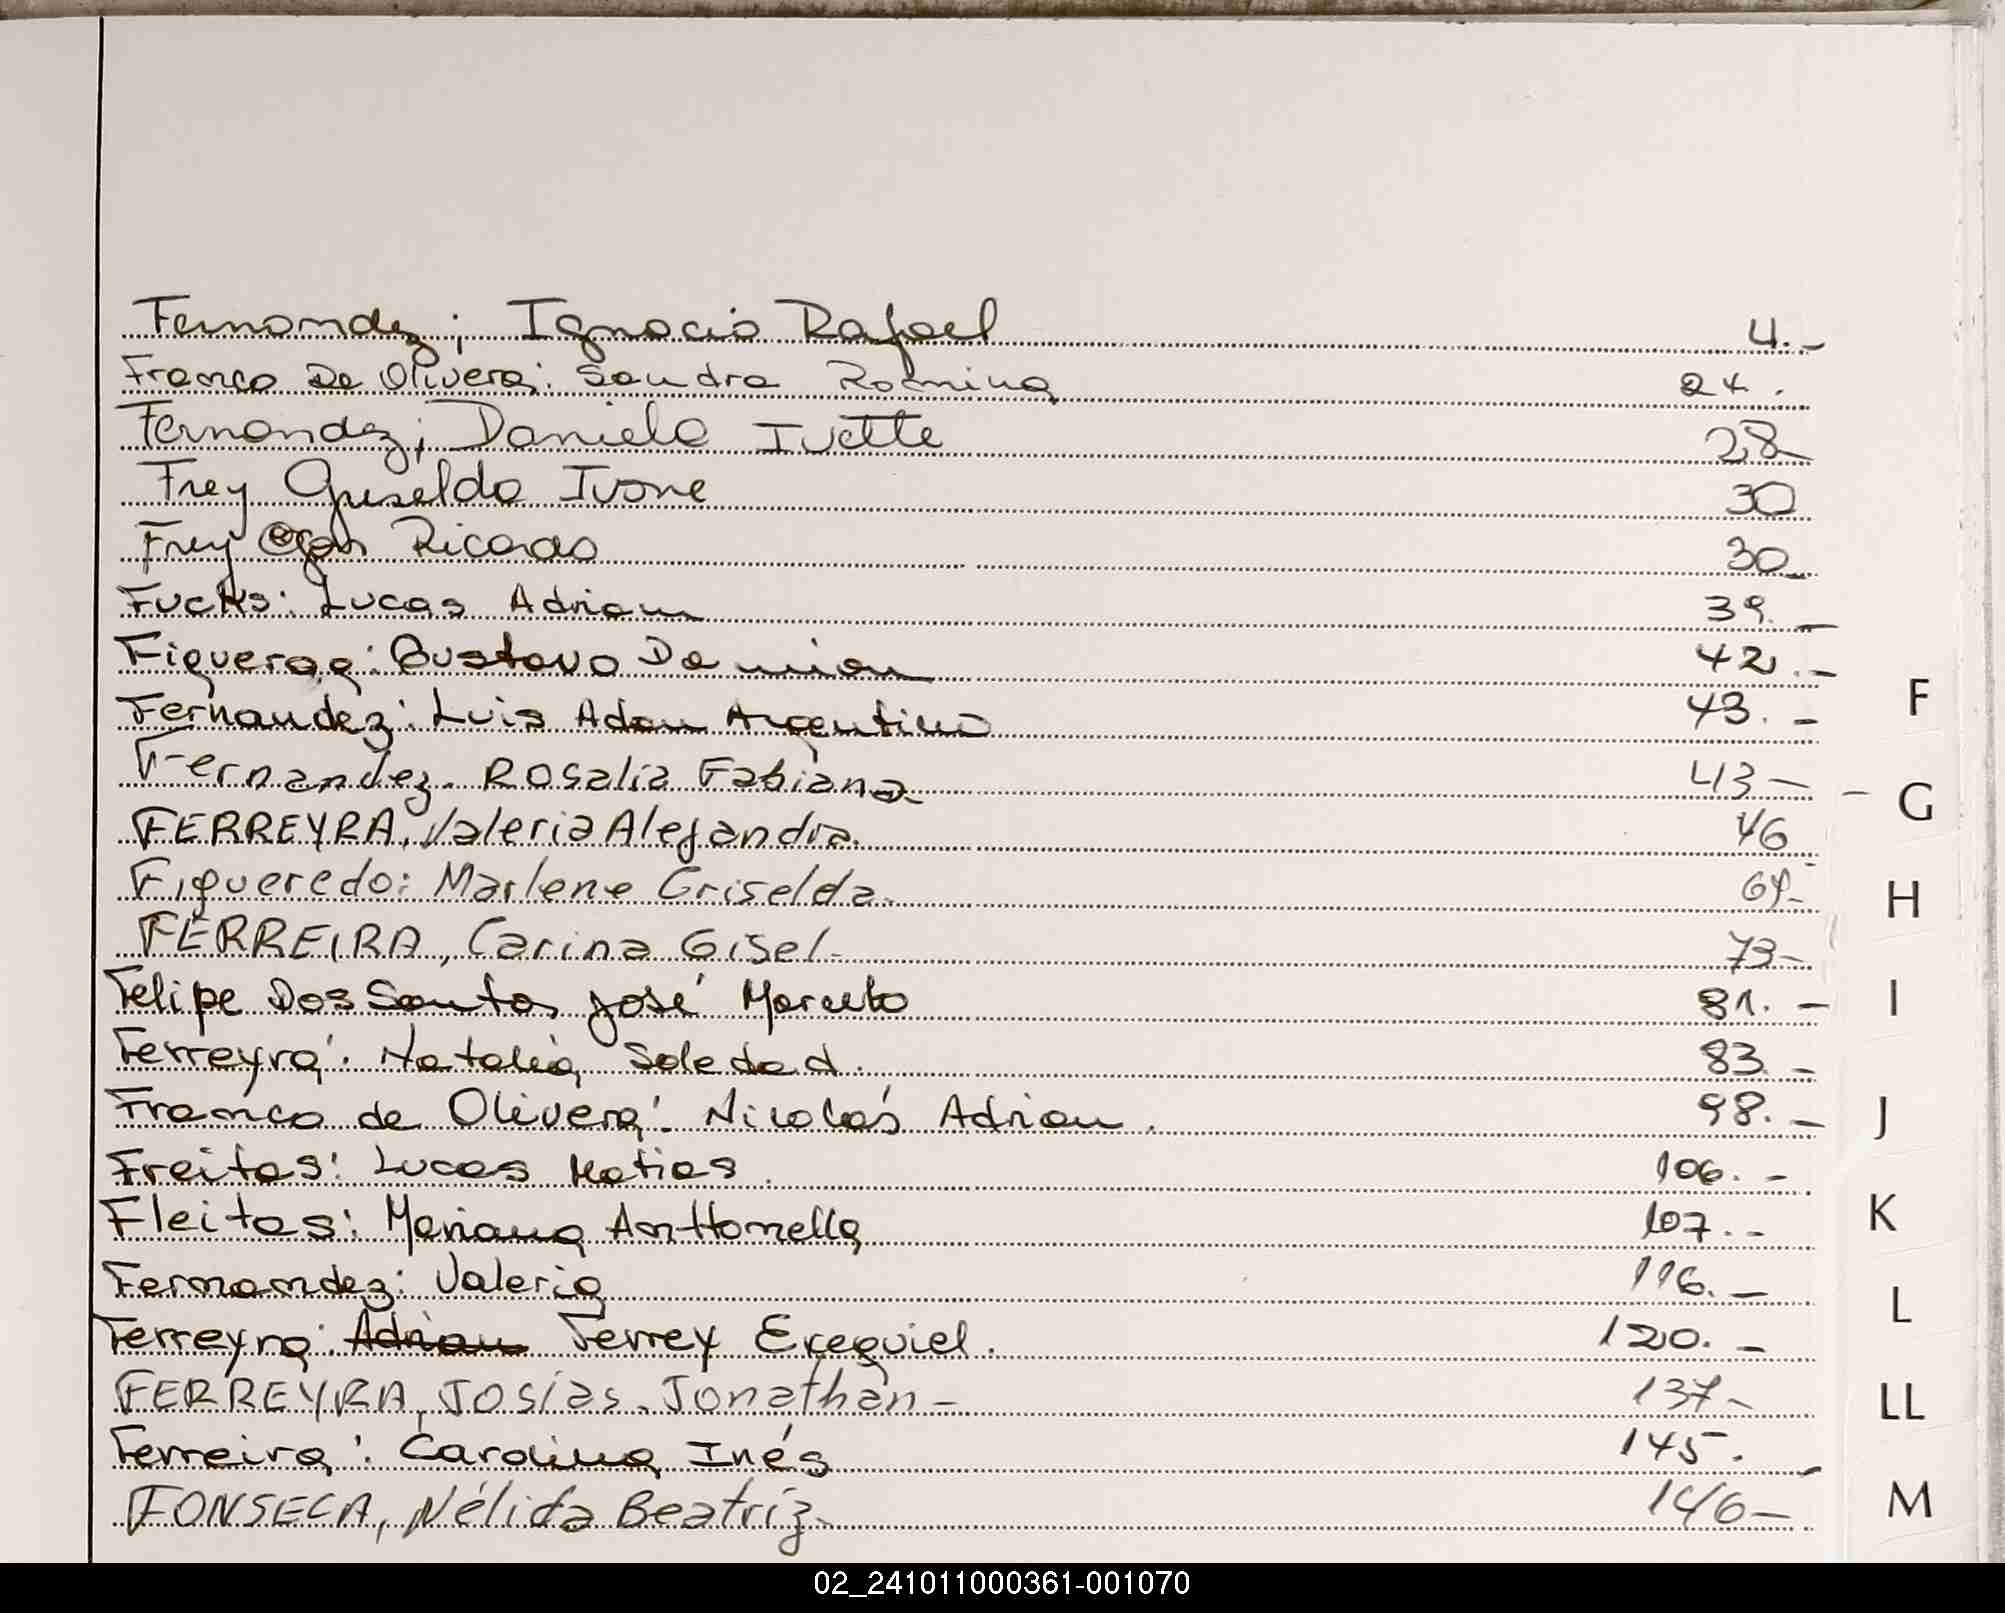 Fernandez; Ignacio Rafael 4.-
Franco De Olivera: Sandra Romina 24.
Fernandez; Daniela Ivette 28-
Frey Griselda Ivone 30
Frey Ricardo 30-
Fucks: Lucas Adrian 39.-
Figueroa: Gustavo Damian 42.-
Fernandez: Luis Adan Argentino 43.-
Fernandez. Rosalia Fabiana- 43-
FERREYRA, Valeria Alejandra. 46-
Figueredo: Marlene Griselda.
FERREIRA, Carina Gisel- 73-
Felipe Dos Santos José Marcelo 81.-
Ferreyra: Natalia Soledad. 83.-
Franco de Olivera: Nicolás Adrian. 98.-
Freitas: Lucas Matias. 106.-
Fleitas: Mariana Anttonella 107.-
Fernandez: Valeria 116.-
Ferreyra: Adrian Ferrey Exequiel. 120.-
FERREYRA, Josías. Jonathan- 137-
Ferreira: Carolina Inés 145.-
FONSECA, Nélida Beatriz- 146-
F
G
H
I
J
K
L
LL
M
02_241011000361-001070